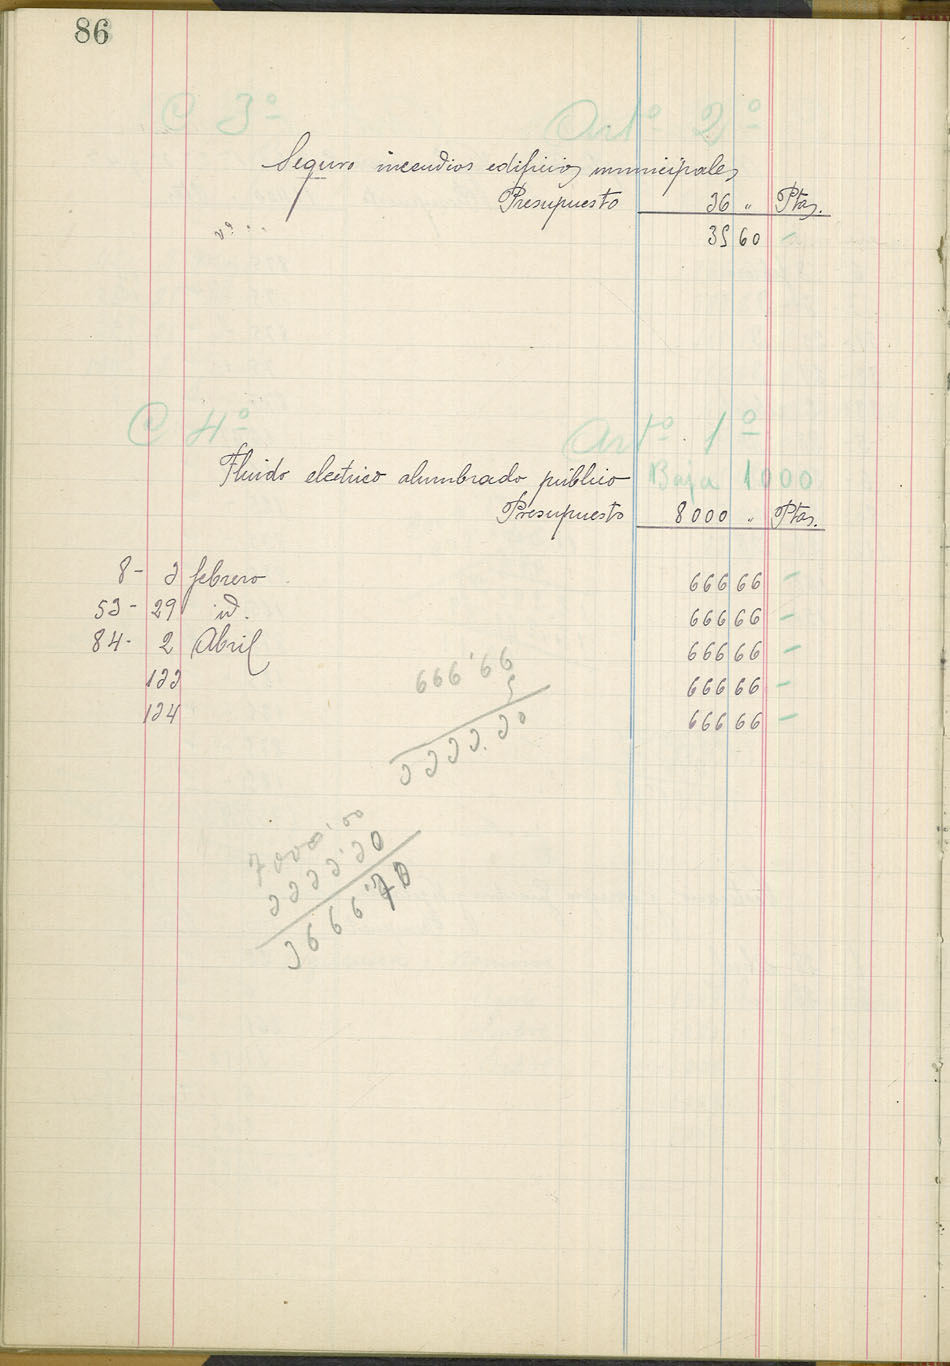 86
C 3º Artº 2º
Seguro incendios edificios municipales
Presupuesto 36 " Ptas.
35 60 -
C 4º Artº 1º
Fluido electrico alumbrado público Baja 1000
Presupuesto 8000 " Ptas.
8- 3 febrero 666 66 -
53- 29 id. 666 66 -
84- 2 Abril 666 66 -
133 666 66 -
134 666 66 -
666'66
5
3333.30
7000'00
3333'30
3666'70